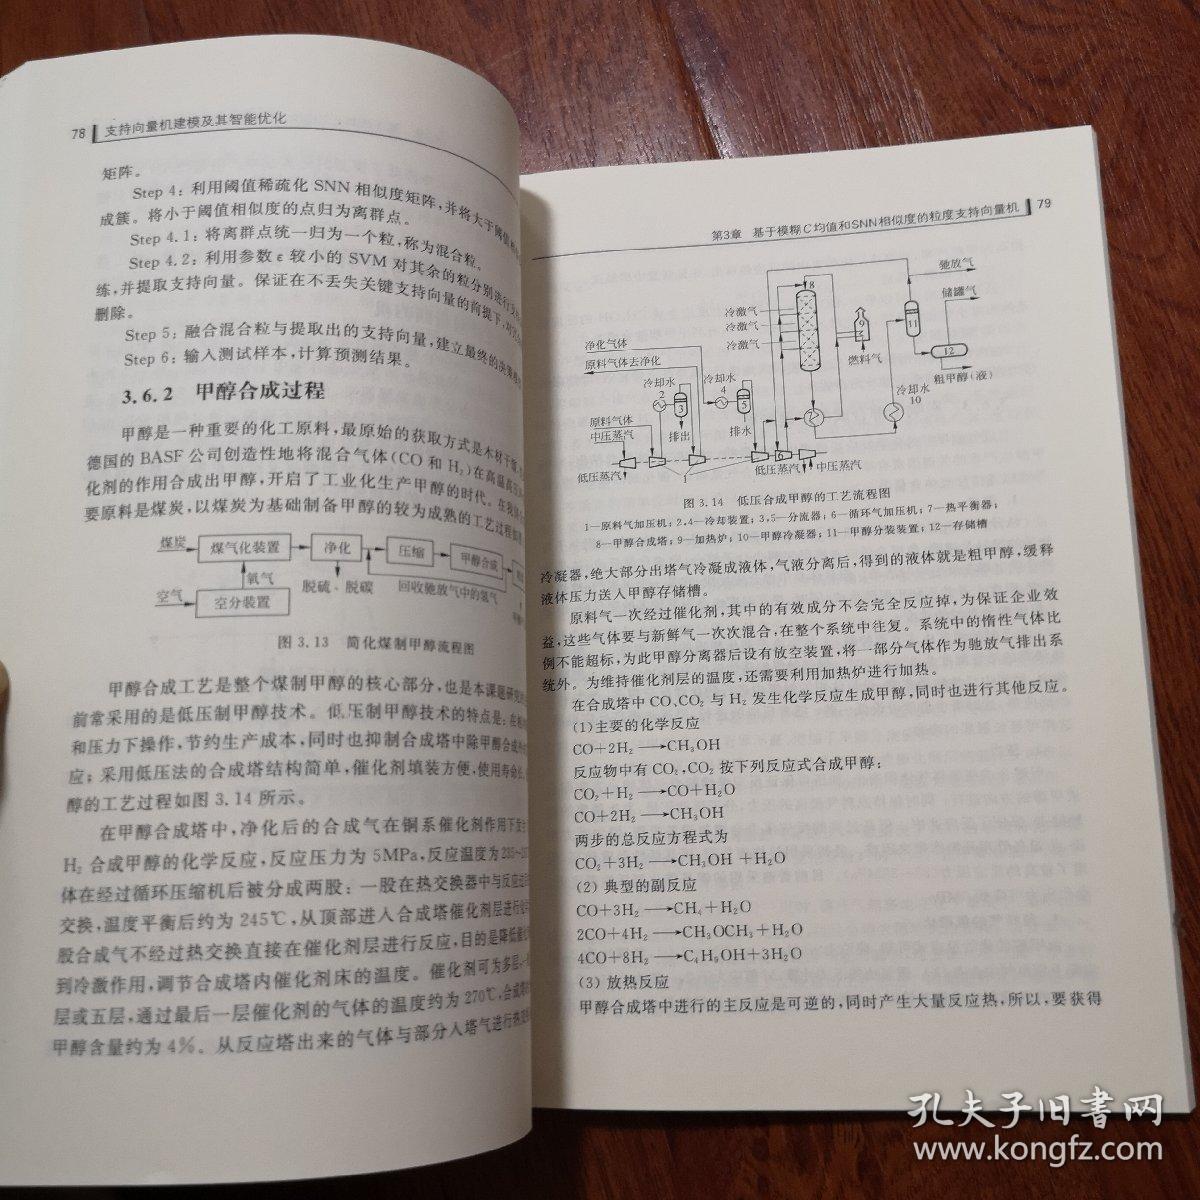 78 支持向量机建模及其智能优化
矩阵。
Step 4：利用阈值稀疏化 SNN 相似度矩阵，并将大于阈值
成簇。将小于阈值相似度的点归为离群点。
Step 4.1：将离群点统一归为一个粒，称为混合粒。
Step 4.2：利用参数 ε 较小的 SVM 对其余的粒分别进行
练，并提取支持向量。保证在不丢失关键支持向量的前提下，对
删除。
Step 5：融合混合粒与提取出的支持向量，建立最终的决策
Step 6：输入测试样本，计算预测结果。
3.6.2 甲醇合成过程
甲醇是一种重要的化工原料，最原始的获取方式是木材干馏，
德国的 BASF 公司创造性地将混合气体(CO 和 H₂)在高温高压
化剂的作用合成出甲醇，开启了工业化生产甲醇的时代。在我
要原料是煤炭，以煤炭为基础制备甲醇的较为成熟的工艺过程如
煤炭 煤气化装置 净化 压缩 甲醇合成
氧气 脱硫、脱碳 回收驰放气中的氢气
空气 空分装置
图 3.13 简化煤制甲醇流程图
甲醇合成工艺是整个煤制甲醇的核心部分，也是本课题研究
前常采用的是低压制甲醇技术。低压制甲醇技术的特点是：在
和压力下操作，节约生产成本，同时也抑制合成塔中除甲醇合成
应；采用低压法的合成塔结构简单，催化剂填装方便，使用寿命长
醇的工艺过程如图 3.14 所示。
在甲醇合成塔中，净化后的合成气在铜系催化剂作用下发生
H₂ 合成甲醇的化学反应，反应压力为 5MPa，反应温度为
体在经过循环压缩机后被分成两股：一股在热交换器中与反应
交换，温度平衡后约为 245℃，从顶部进入合成塔催化剂层进行
股合成气不经过热交换直接在催化剂层进行反应，目的是降低
到冷激作用，调节合成塔内催化剂床的温度。催化剂可为多层，
层或五层，通过最后一层催化剂的气体的温度约为 270℃，合成
甲醇含量约为 4%。从反应塔出来的气体与部分入塔气进行热
第3章 基于模糊C均值和SNN相似度的粒度支持向量机 79
驰放气
储罐气
8
冷激气
冷激气
冷激气
9
燃料气
11
12
粗甲醇(液)
净化气体
原料气体去净化
冷却水
2
3
排出
冷却水
4
5
排水
7
冷却水
10
原料气体
中压蒸汽
低压蒸汽
1
6
低压蒸汽
中压蒸汽
图 3.14 低压合成甲醇的工艺流程图
1—原料气加压机；2,4—冷却装置；3,5—分流器；6—循环气加压机；7—热平衡器；
8—甲醇合成塔；9—加热炉；10—甲醇冷凝器；11—甲醇分装装置；12—存储槽
冷凝器，绝大部分出塔气冷凝成液体，气液分离后，得到的液体就是粗甲醇，缓释
液体压力送入甲醇存储槽。
原料气一次经过催化剂，其中的有效成分不会完全反应掉，为保证企业效
益，这些气体要与新鲜气一次次混合，在整个系统中往复。系统中的惰性气体比
例不能超标，为此甲醇分离器后设有放空装置，将一部分气体作为驰放气排出系
统外。为维持催化剂层的温度，还需要利用加热炉进行加热。
在合成塔中 CO、CO₂ 与 H₂ 发生化学反应生成甲醇，同时也进行其他反应。
(1)主要的化学反应
CO+2H₂ ⟶CH₃OH
反应物中有 CO₂，CO₂ 按下列反应式合成甲醇：
CO₂+H₂ ⟶CO+H₂O
CO+2H₂ ⟶CH₃OH
两步的总反应方程式为
CO₂+3H₂ ⟶CH₃OH +H₂O
(2) 典型的副反应
CO+3H₂ ⟶CH₄+H₂O
2CO+4H₂ ⟶CH₃OCH₃+H₂O
4CO+8H₂ ⟶C₄H₉OH+3H₂O
(3) 放热反应
甲醇合成塔中进行的主反应是可逆的，同时产生大量反应热，所以，要获得
孔夫子旧书网
www.kongfz.com